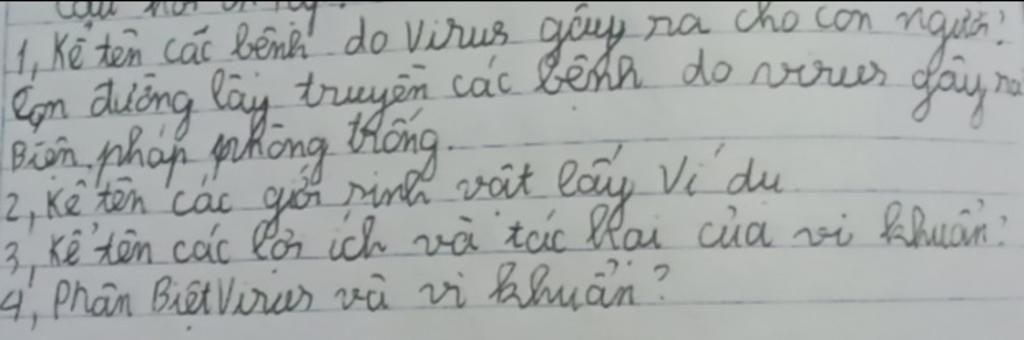 Câu hỏi ôn tập.
1, Kể tên các bệnh do virus gây ra cho con người?
Con đường lây truyền các bệnh do virus gây ra
Biện pháp phòng chống.
2, Kể tên các giới sinh vật lấy ví dụ
3, Kể tên các lợi ích và tác hại của vi khuẩn?
4, Phân Biệt Virus và vi khuẩn?